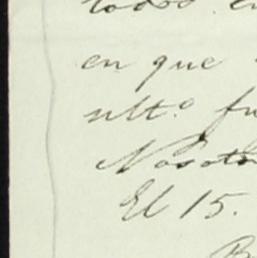 todos en
en que
ult.º fu
Nosotr
El 15.
B